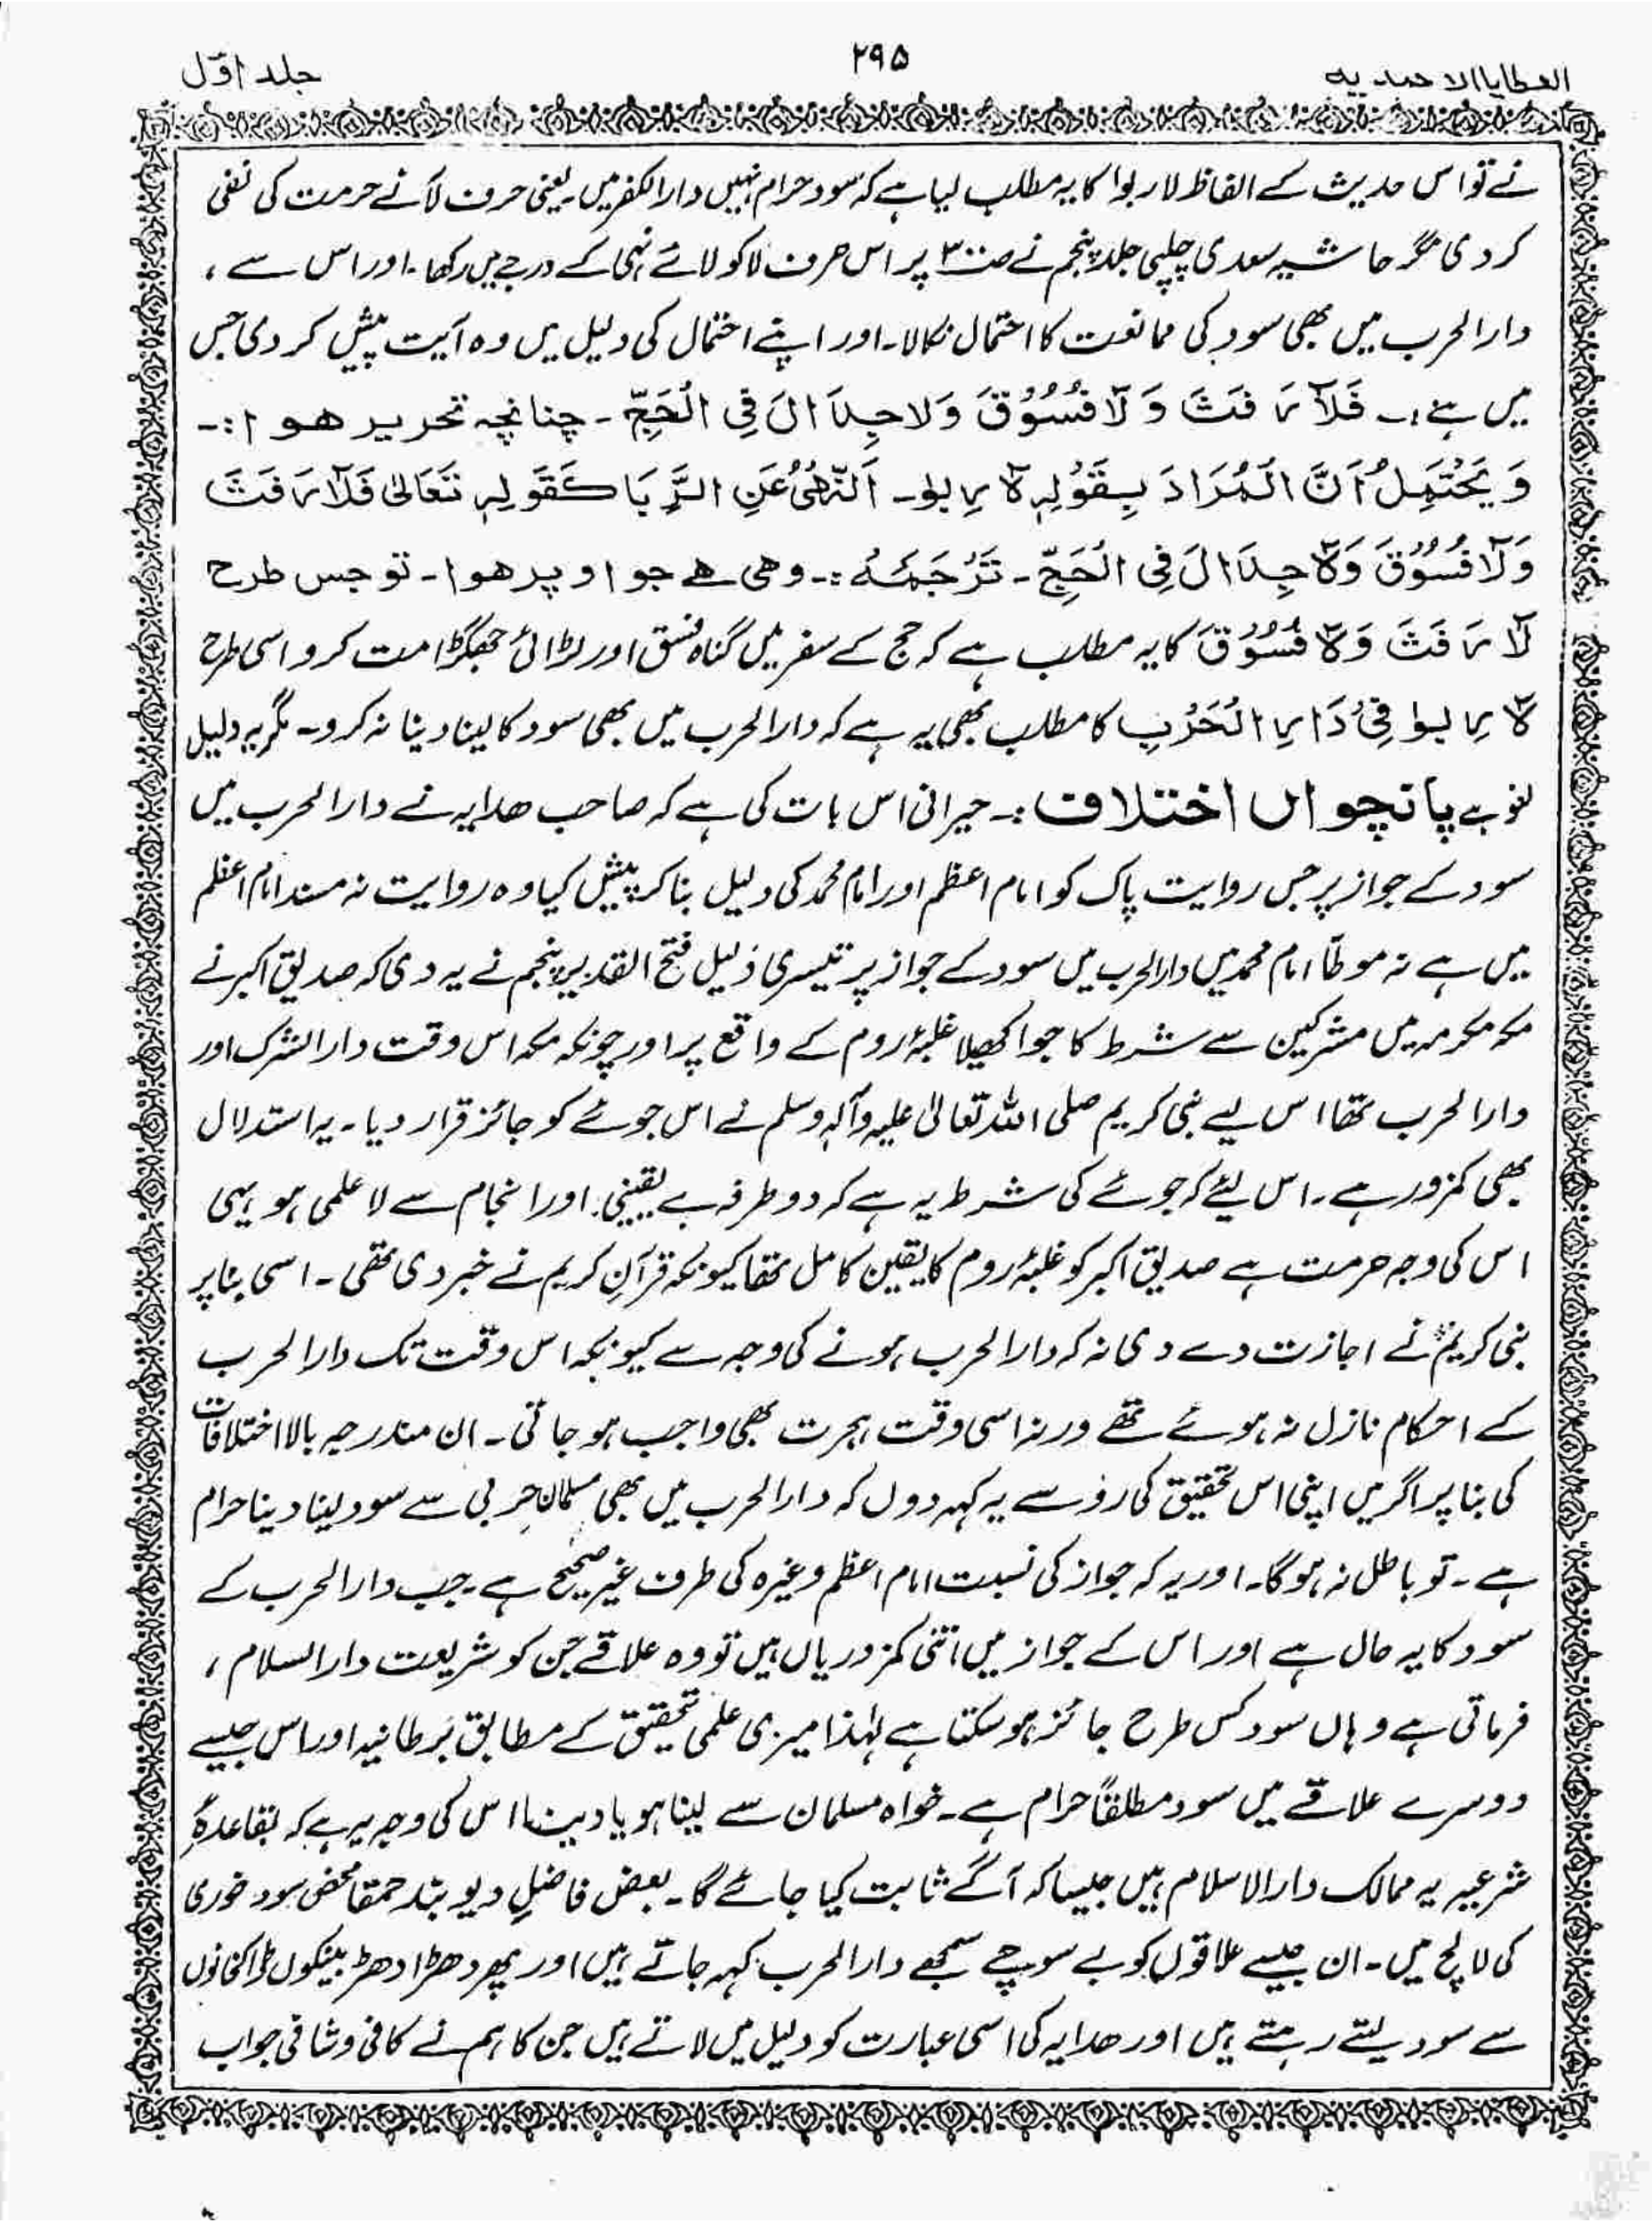 العطایا الاحمدیه
۲۹۵
جلد اوّل
نے تو اس حدیث کے الفاظ لا ربوا کا یہ مطلب لیا ہے کہ سود حرام نہیں دارالکفر میں۔ یعنی حرف لَا نے حرمت کی نفی
کر دی مگر حاشیہ سعدی چلپی جلد پنجم نے صـ۳۰۰ پر اس حرف لا کو لائے نہی کے درجے میں رکھا۔ اور اس سے،
دارالحرب میں بھی سود کی ممانعت کا احتمال نکالا۔ اور اپنے احتمال کی دلیل میں وہ آیت پیش کر دی جس
میں ہے:۔ فَلَآ رَفَثَ وَ لَآ فُسُوْقَ وَلَا جِدَالَ فِی الْحَجِّ۔ چنانچہ تحریر ھوا:۔
وَ یَحْتَمِلُ اَنَّ الْمُرَادَ بِقَوْلِہٖ لَا رِبٰوا۔ اَلنَّھْیُ عَنِ الرِّبَا کَقَولِہٖ تَعَالیٰ فَلَآ رَفَثَ
وَلَا فُسُوْقَ وَلَا جِدَالَ فِی الْحَجِّ۔ تَرْجَمَہُ:۔ وھی ھے جو اوپر ھوا۔ تو جس طرح
لَا رَفَثَ وَلَا فُسُوْقَ کا یہ مطلب ہے کہ حج کے سفر میں گناہ فسق اور لڑائی جھگڑا مت کرو اسی طرح
لَا رِبٰوا فِیْ دَارِ الْحَرْبِ کا مطلب بھی یہ ہے کہ دارالحرب میں بھی سود کا لینا دینا نہ کرو۔ مگر یہ دلیل
لغو ہے پانچواں اختلاف:۔ حیرانی اس بات کی ہے کہ صاحب ھدایہ نے دارالحرب میں
سود کے جواز پر جس روایت پاک کو امام اعظم اور امام محمد کی دلیل بنا کر پیش کیا وہ روایت نہ مسند امام اعظم
میں ہے نہ موطّا امام محمد میں دارالحرب میں سود کے جواز پر تیسری دلیل فتح القدیر پنجم نے یہ دی کہ صدیق اکبر نے
مکہ مکرمہ میں مشرکین سے شرط کا جوا کھیلا غلبۂ روم کے واقع پر اور چونکہ مکہ اس وقت دارالشرک اور
دارالحرب تھا اس لیے نبی کریم صلی اللہ تعالیٰ علیہ وآلہ وسلم نے اس جوئے کو جائز قرار دیا۔ یہ استدلال
بھی کمزور ہے۔ اس لیئے کہ جوئے کی شرط یہ ہے کہ دو طرفہ بے یقینی۔ اور انجام سے لاعلمی ہو یہی
اس کی وجہ حرمت ہے صدیق اکبر کو غلبۂ روم کا یقین کامل تھا کیونکہ قرآن کریم نے خبر دی تھی۔ اسی بنا پر
نبی کریمؐ نے اجازت دے دی نہ کہ دارالحرب ہونے کی وجہ سے کیونکہ اس وقت تک دارالحرب
کے احکام نازل نہ ہوئے تھے ورنہ اسی وقت ہجرت بھی واجب ہو جاتی۔ ان مندرجہ بالا اختلافات
کی بنا پر اگر میں اپنی اس تحقیق کی رو سے یہ کہہ دوں کہ دارالحرب میں بھی مسلمان حربی سے سود لینا دینا حرام
ہے۔ تو باطل نہ ہوگا۔ اور یہ کہ جواز کی نسبت امام اعظم وغیرہ کی طرف غیر صحیح ہے۔ جب دارالحرب کے
سود کا یہ حال ہے اور اس کے جواز میں اتنی کمزوریاں ہیں تو وہ علاقے جن کو شریعت دارالسلام،
فرماتی ہے وہاں سود کس طرح جائز ہو سکتا ہے لہٰذا میری علمی تحقیق کے مطابق برطانیہ اور اس جیسے
دوسرے علاقے میں سود مطلقاً حرام ہے۔ خواہ مسلمان سے لینا ہو یا دینا اس کی وجہ یہ ہے کہ بقاعدۂ
شرعیہ یہ ممالک دارالاسلام ہیں جیسا کہ آگے ثابت کیا جائے گا۔ بعض فاضلِ دیوبند حمقا محض سود خوری
کی لالچ میں۔ ان جیسے علاقوں کو بے سوچے سمجھے دارالحرب کہہ جاتے ہیں اور پھر دھڑا دھڑ بینکوں ڈاکخانوں
سے سود لیتے رہتے ہیں اور ھدایہ کی اسی عبارت کو دلیل میں لاتے ہیں جن کا ہم نے کافی وشافی جواب